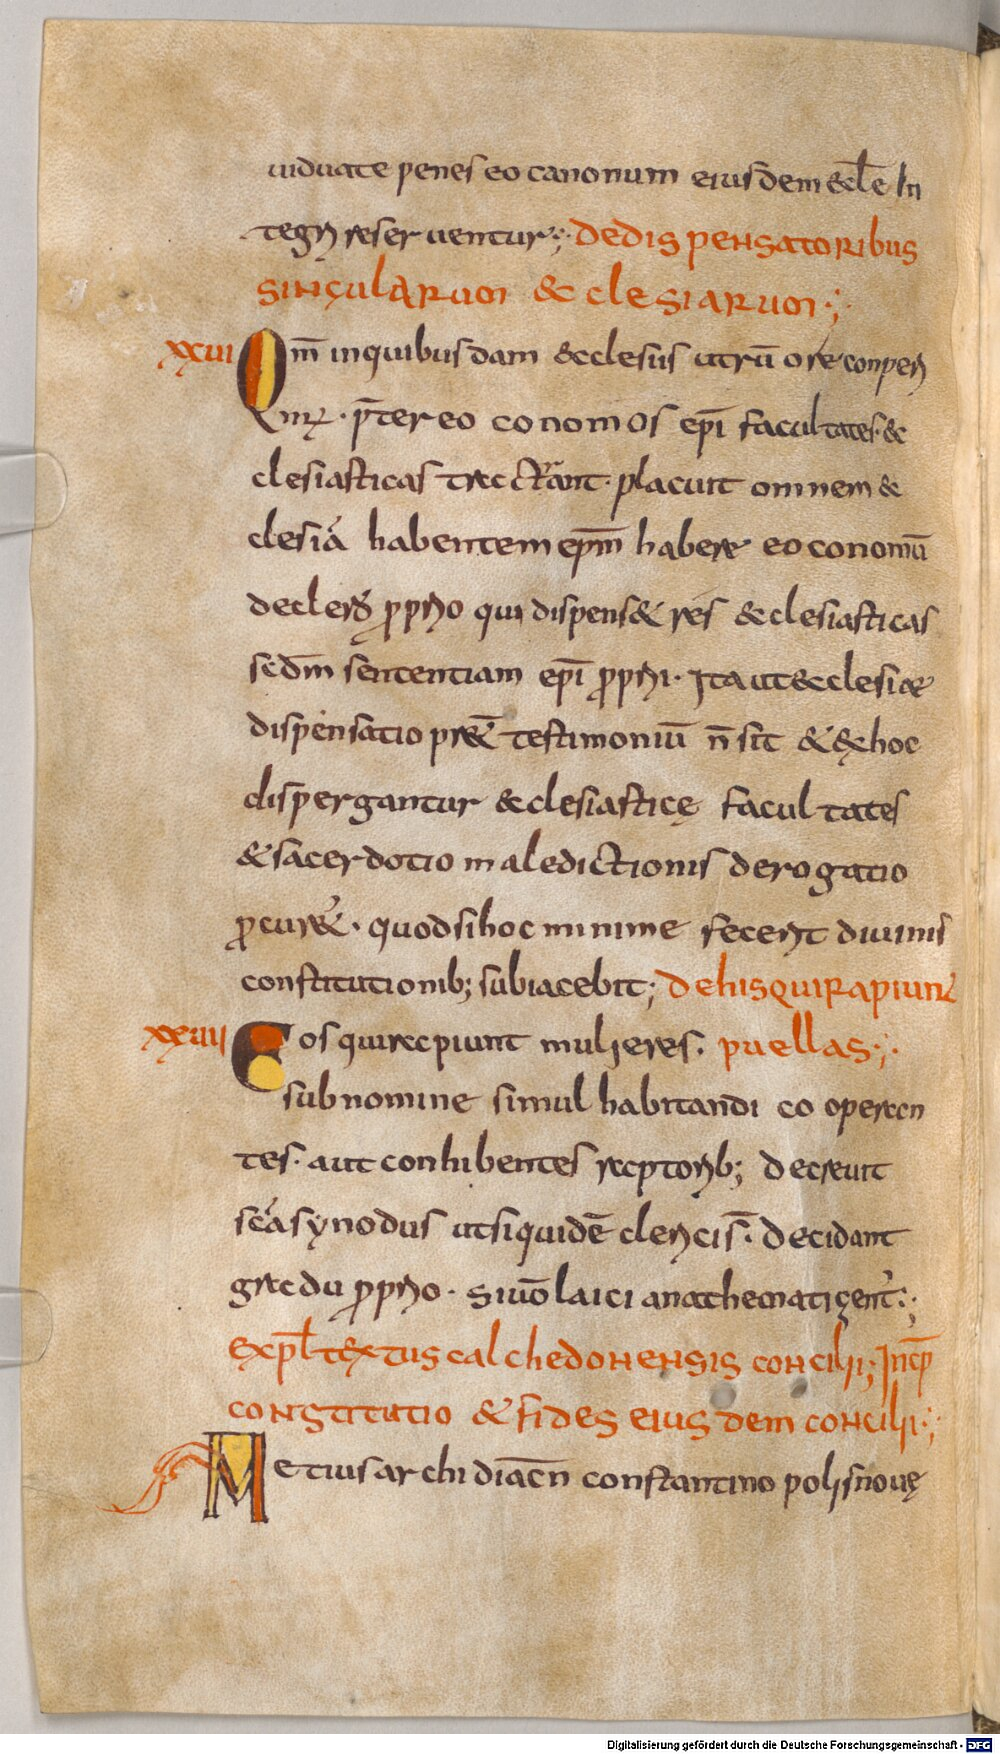 uiduate penes eo canonum eiusdem &cl̄e In
tegri reseruentur; de dispensatoribus
singularum &clesiarum;
xxui Qm̄ in quibusdam &cclesiis ut rumore conperi
mꝰ. p̄ter eo conomos ep̄i facultates &
clesiasticas tractant. placuit omnem &
clesiā habentem ep̄m habere eoconomū
declero proprio qui dispens& res &clesiasticas
secdm̄ sententiam ep̄i proprii. Ita ut &cclesiae
dispensatio pret̄ testimoniū n̄ sit & ex hoc
dispergantur &clesiasticę facultates
& sacerdotio maledictionis derogatio
procur&. quod si hoc minime fecerit diuinis
constitutionib; subiacebit; de his qui rapiunt
xxuii Eos qui rapiunt mulieres. puellas;
sub nomine simul habitandi co operan
tes. aut conhibentes raptorib; decreuit
sc̄a synodus ut siquidē clerici s̄. decidant
gradu proprio. si uō laici anathematizent;
Expl̄ textus calchedonensis concilii; Incp̄
constitutio & fides eiusdem concilii;
Aetius archidiac̄n constantinopolis nouę
Digitalisierung gefördert durch die Deutsche Forschungsgemeinschaft - DFG